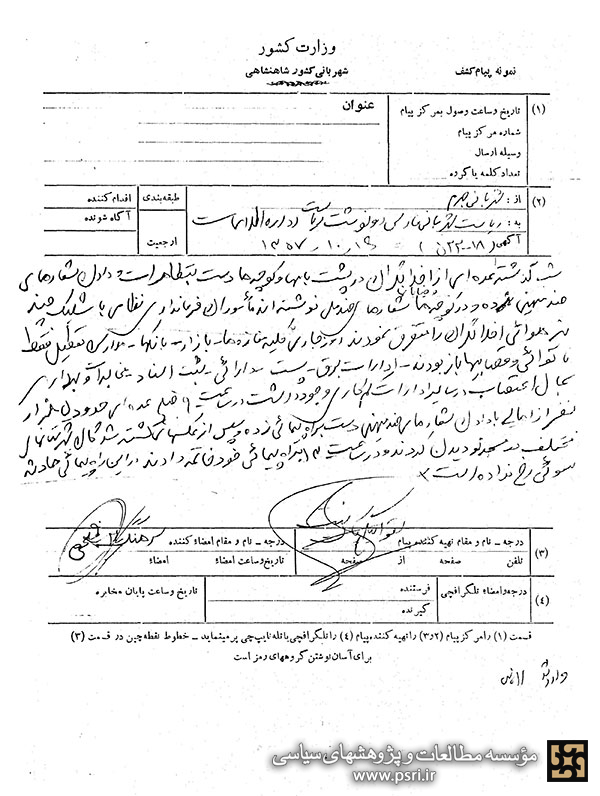 وزارت کشور
شهربانی کشور شاهنشاهی
نمونه پیام کشف
(۱)
تاریخ و ساعت وصول بمرکز پیام
عنوان
شماره مرکز پیام
وسیله ارسال
تعداد کلمه یا گروه
(۲)
از: شهربانی جهرم
طبقه‌بندی
اقدام کننده
به: ریاست شهربانی فارس رونوشت ریاست اداره اطلاعات
آگاه شونده
۱۳۵۷/۱۰/۱۶
ارجعیت
شب گذشته عده‌ای از اخلالگران در پشت بامها و کوچه‌ها دست به تظاهرات و دادن شعارهای
ضد میهنی زده و در کوچه‌ها شعارهای ضد ملی نوشته‌اند مأموران فرمانداری نظامی با شلیک چند
تیر هوائی اخلالگران را متفرق نمودند روز جاری کلیه مغازه‌ها - بازار - بانکها - مدارس تعطیل فقط
نانوائی و قصابیها باز بودند - ادارات برق - پست - دارائی - ثبت اسناد - مخابرات و بهداری
بحال اعتصاب در سایر ادارات کم کاری وجود داشت در ساعت ۹ صبح عده‌ای حدود
نفر از اهالی با دادن شعارهای ضد میهنی دست براه پیمائی زده و پس از
مختلف در مسجد نو گردیدند و در ساعت ۱۲ براه پیمائی خود خاتمه دادند در این راه پیمائی حادثه
سوئی رخ نداده است
(۳)
درجه - نام و مقام تهیه کننده پیام
درجه - نام و مقام امضاء کننده
سرهنگ
تلفن صفحه از صفحه
تاریخ و ساعت امضاء امضاء
(۴)
درجه و امضاء تلگرافچی
فرستنده
تاریخ و ساعت پایان مخابره
گیرنده
قسمت (۱) را مرکز پیام (۲ و ۳) را تهیه کننده پیام (۴) را تلگرافچی با تله تایپچی پر مینماید - خطوط نقطه چین در قسمت (۳)
برای آسان نوشتن گروههای رمز است
مؤسسه مطالعات و پژوهشهای سیاسی
www.psri.ir